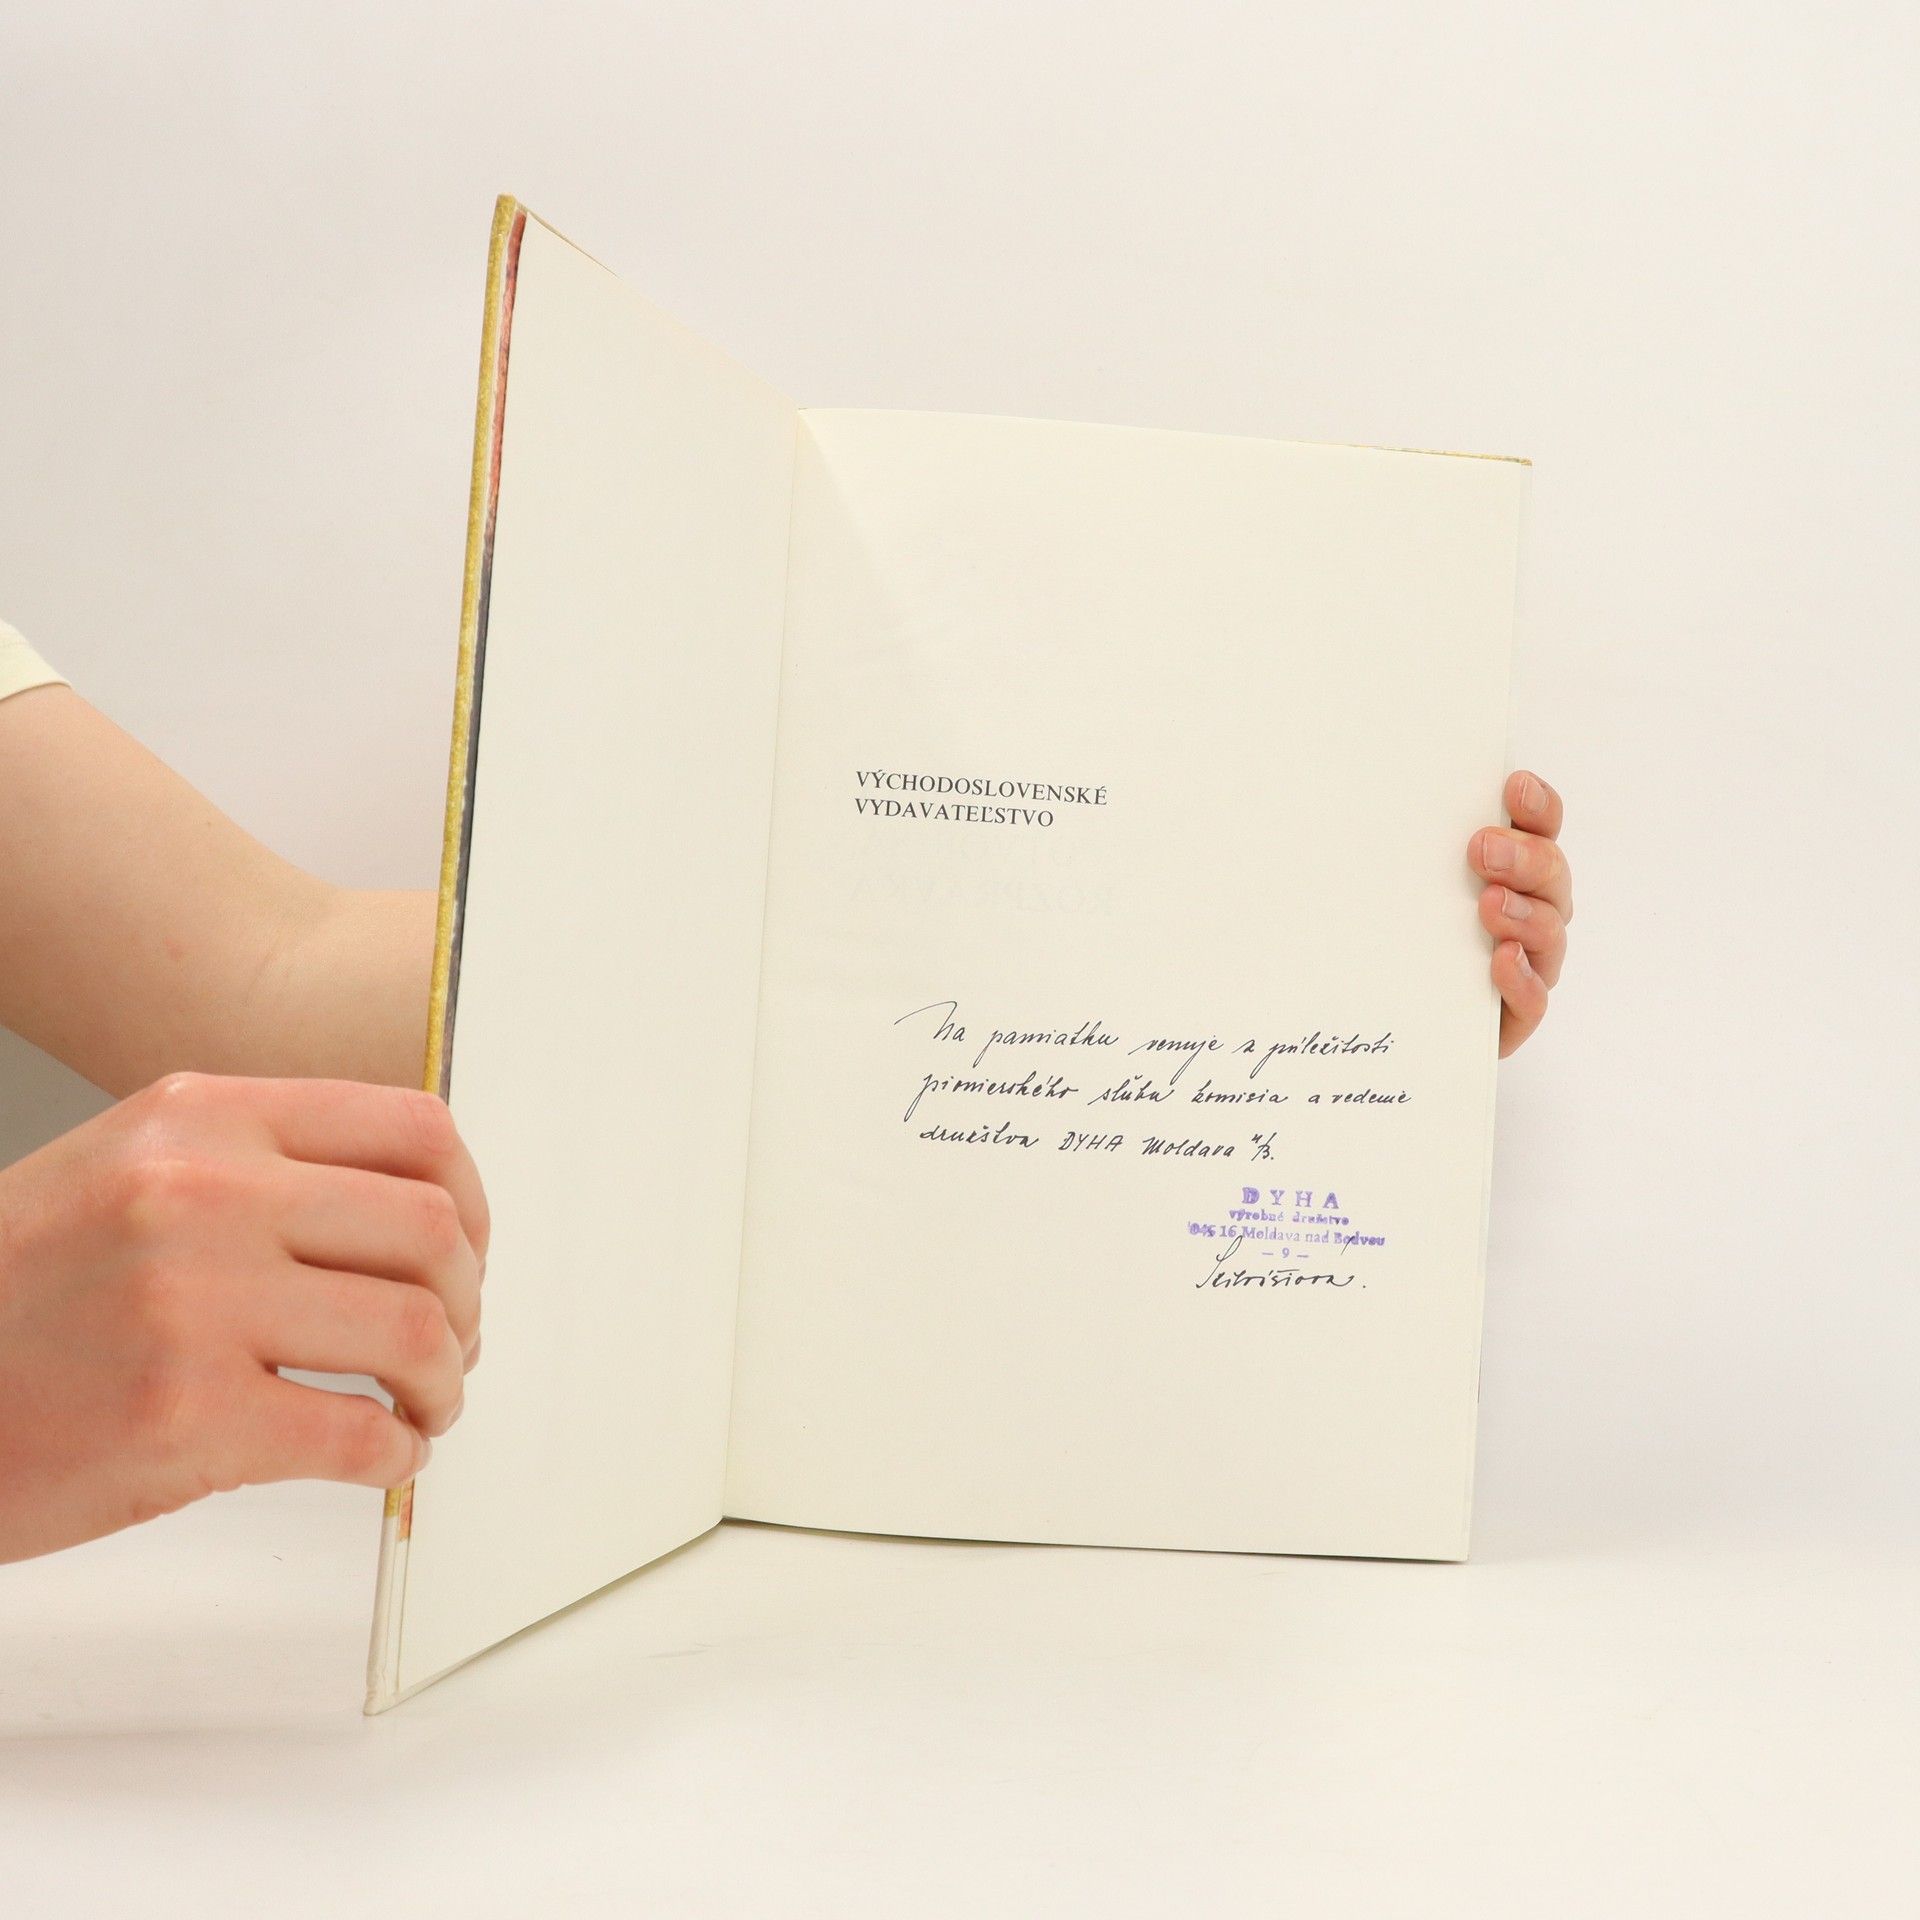 VÝCHODOSLOVENSKÉ
VYDAVATEĽSTVO
Na pamiatku venuje z príležitosti
pionierského sľubu komisia a vedenie
družstva DYHA Moldava n/B.
DYHA
výrobné družstvo
16 Moldava nad Bodvou
— 9 —